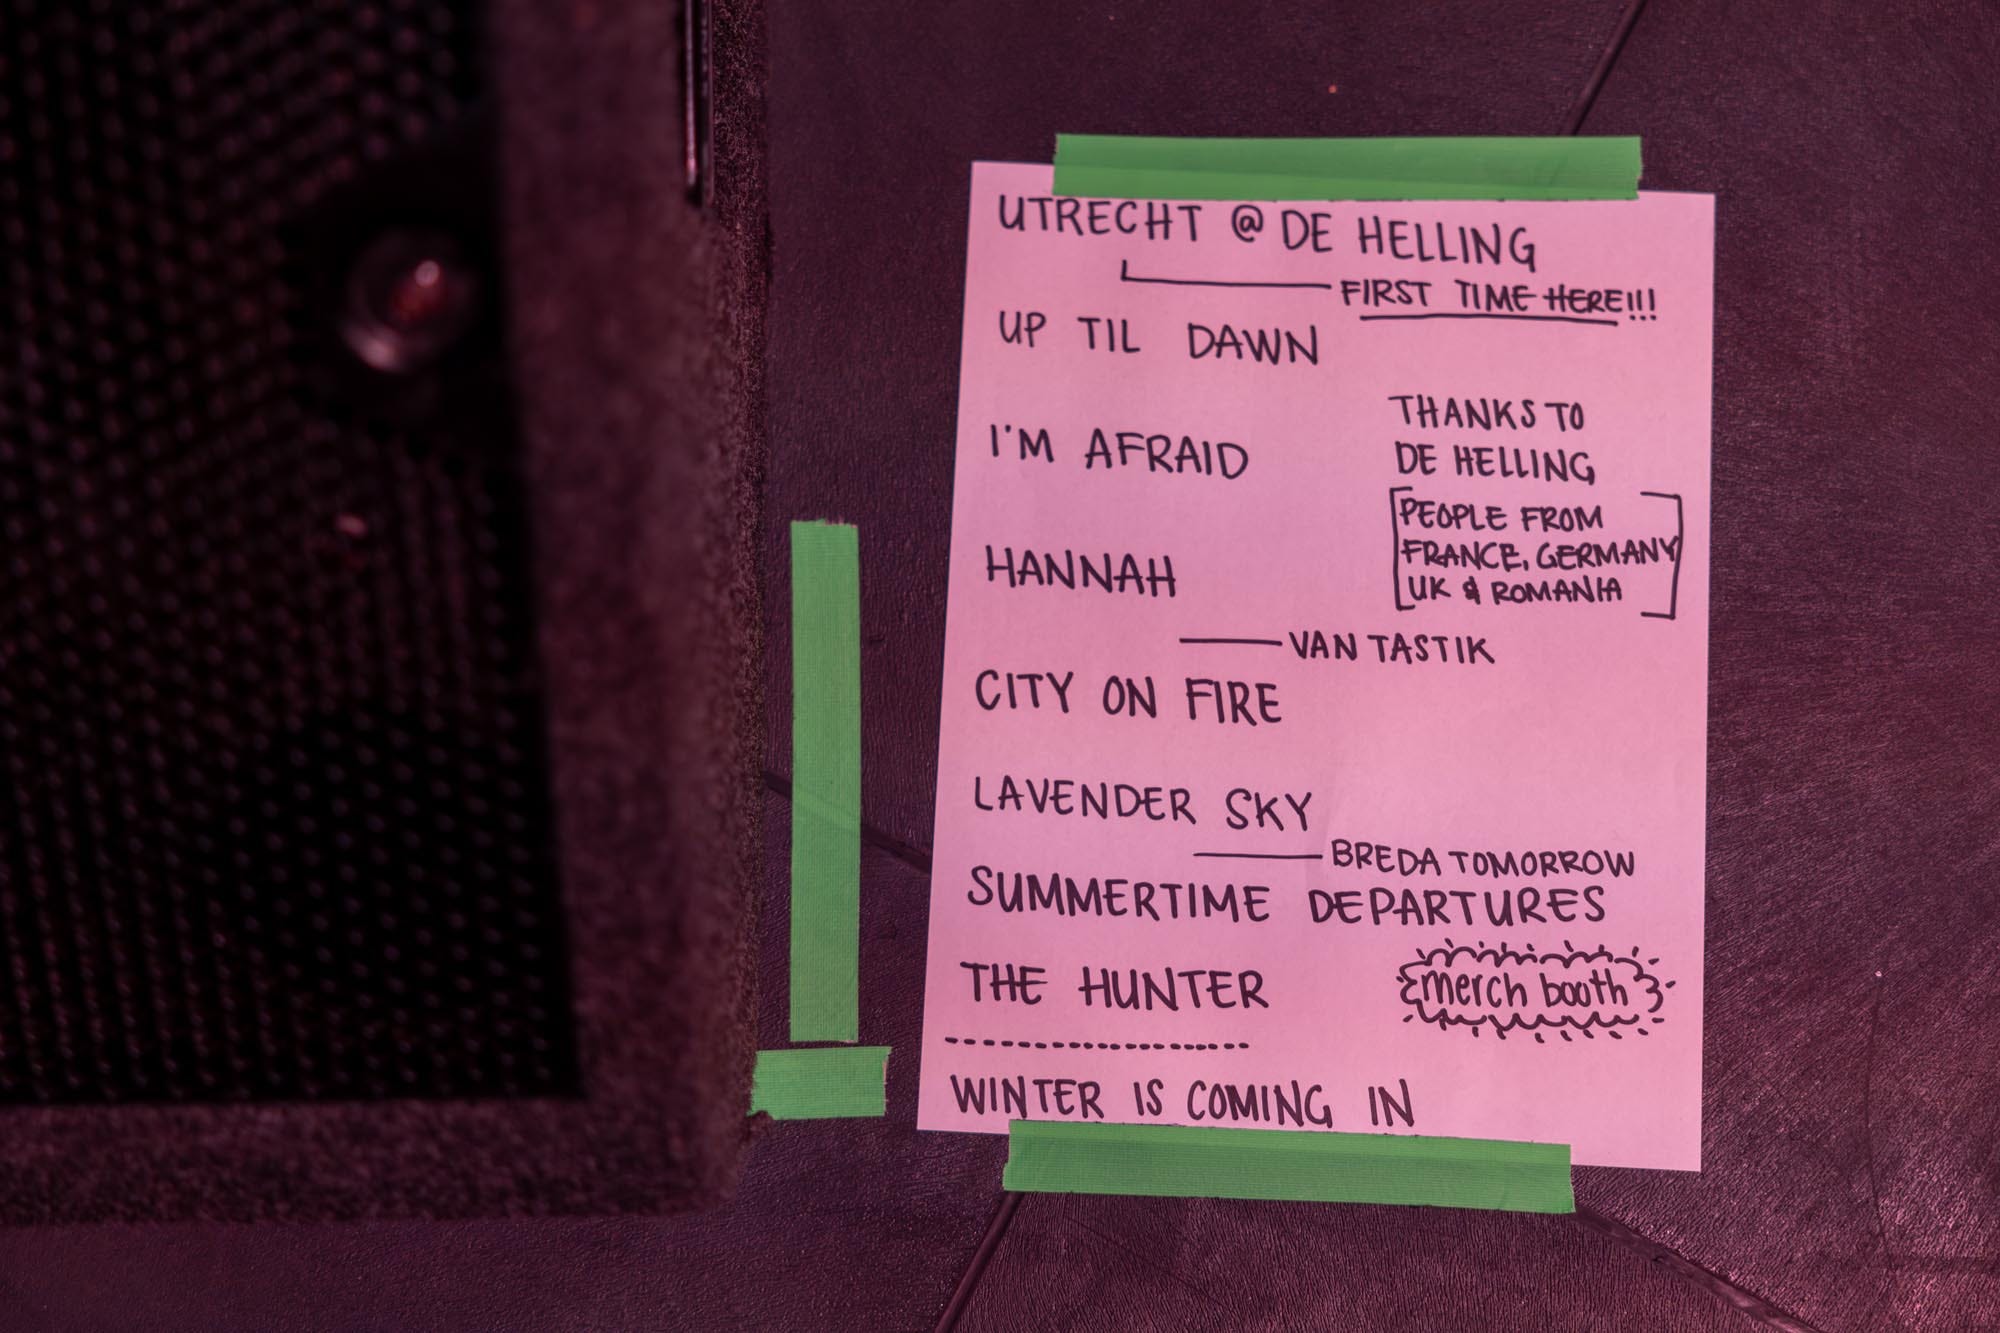 UTRECHT @ DE HELLING
FIRST TIME HERE!!!
UP TIL DAWN
I'M AFRAID
THANKS TO
DE HELLING
PEOPLE FROM
FRANCE, GERMANY
UK & ROMANIA
HANNAH
VAN TASTIK
CITY ON FIRE
LAVENDER SKY
BREDA TOMORROW
SUMMERTIME DEPARTURES
THE HUNTER
merch booth
WINTER IS COMING IN